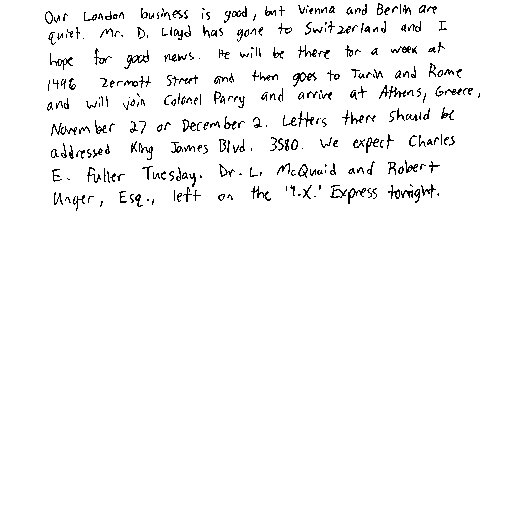 Our London business is good, but Vienna and Berlin are
quiet. Mr. D. Lloyd has gone to Switzerland and I
hope for good news. He will be there for a week at
1496 Zermott Street and then goes to Turin and Rome
and will join Colonel Parry and arrive at Athens, Greece,
November 27 or December 2. Letters there should be
addressed King James Blvd. 3580. We expect Charles
E. Fuller Tuesday. Dr. L. McQuaid and Robert
Unger, Esq., left on the 'Y.X.' Express tonight.